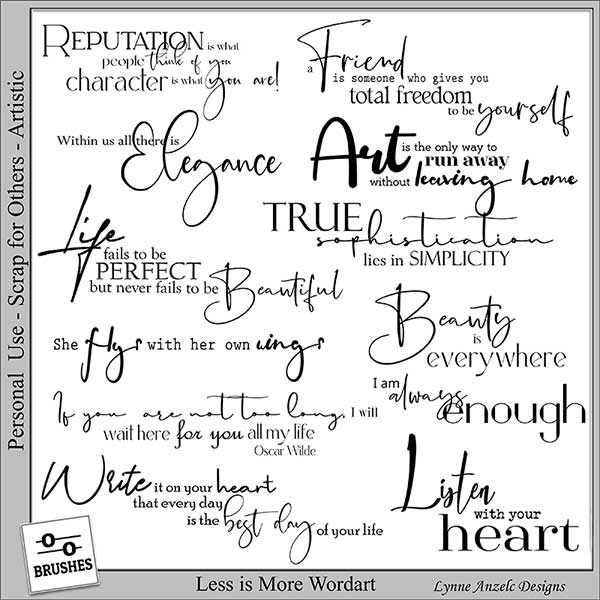 REPUTATION is what
people think of you
character is what you are!
a Friend
is someone who gives you
total freedom
to be yourself
Within us all there is
Elegance
Art is the only way to
run away
without leaving home
TRUE
sophistication
lies in SIMPLICITY
Life
fails to be
PERFECT
but never fails to be Beautiful
Beauty
is
everywhere
She flys with her own wings
I am always
enough
If you are not too long, I will
wait here for you all my life
Oscar Wilde
Write it on your heart
that every day
is the best day of your life
Listen
with your
heart
Personal Use - Scrap for Others - Artistic
BRUSHES
Less is More Wordart
Lynne Anzelc Designs